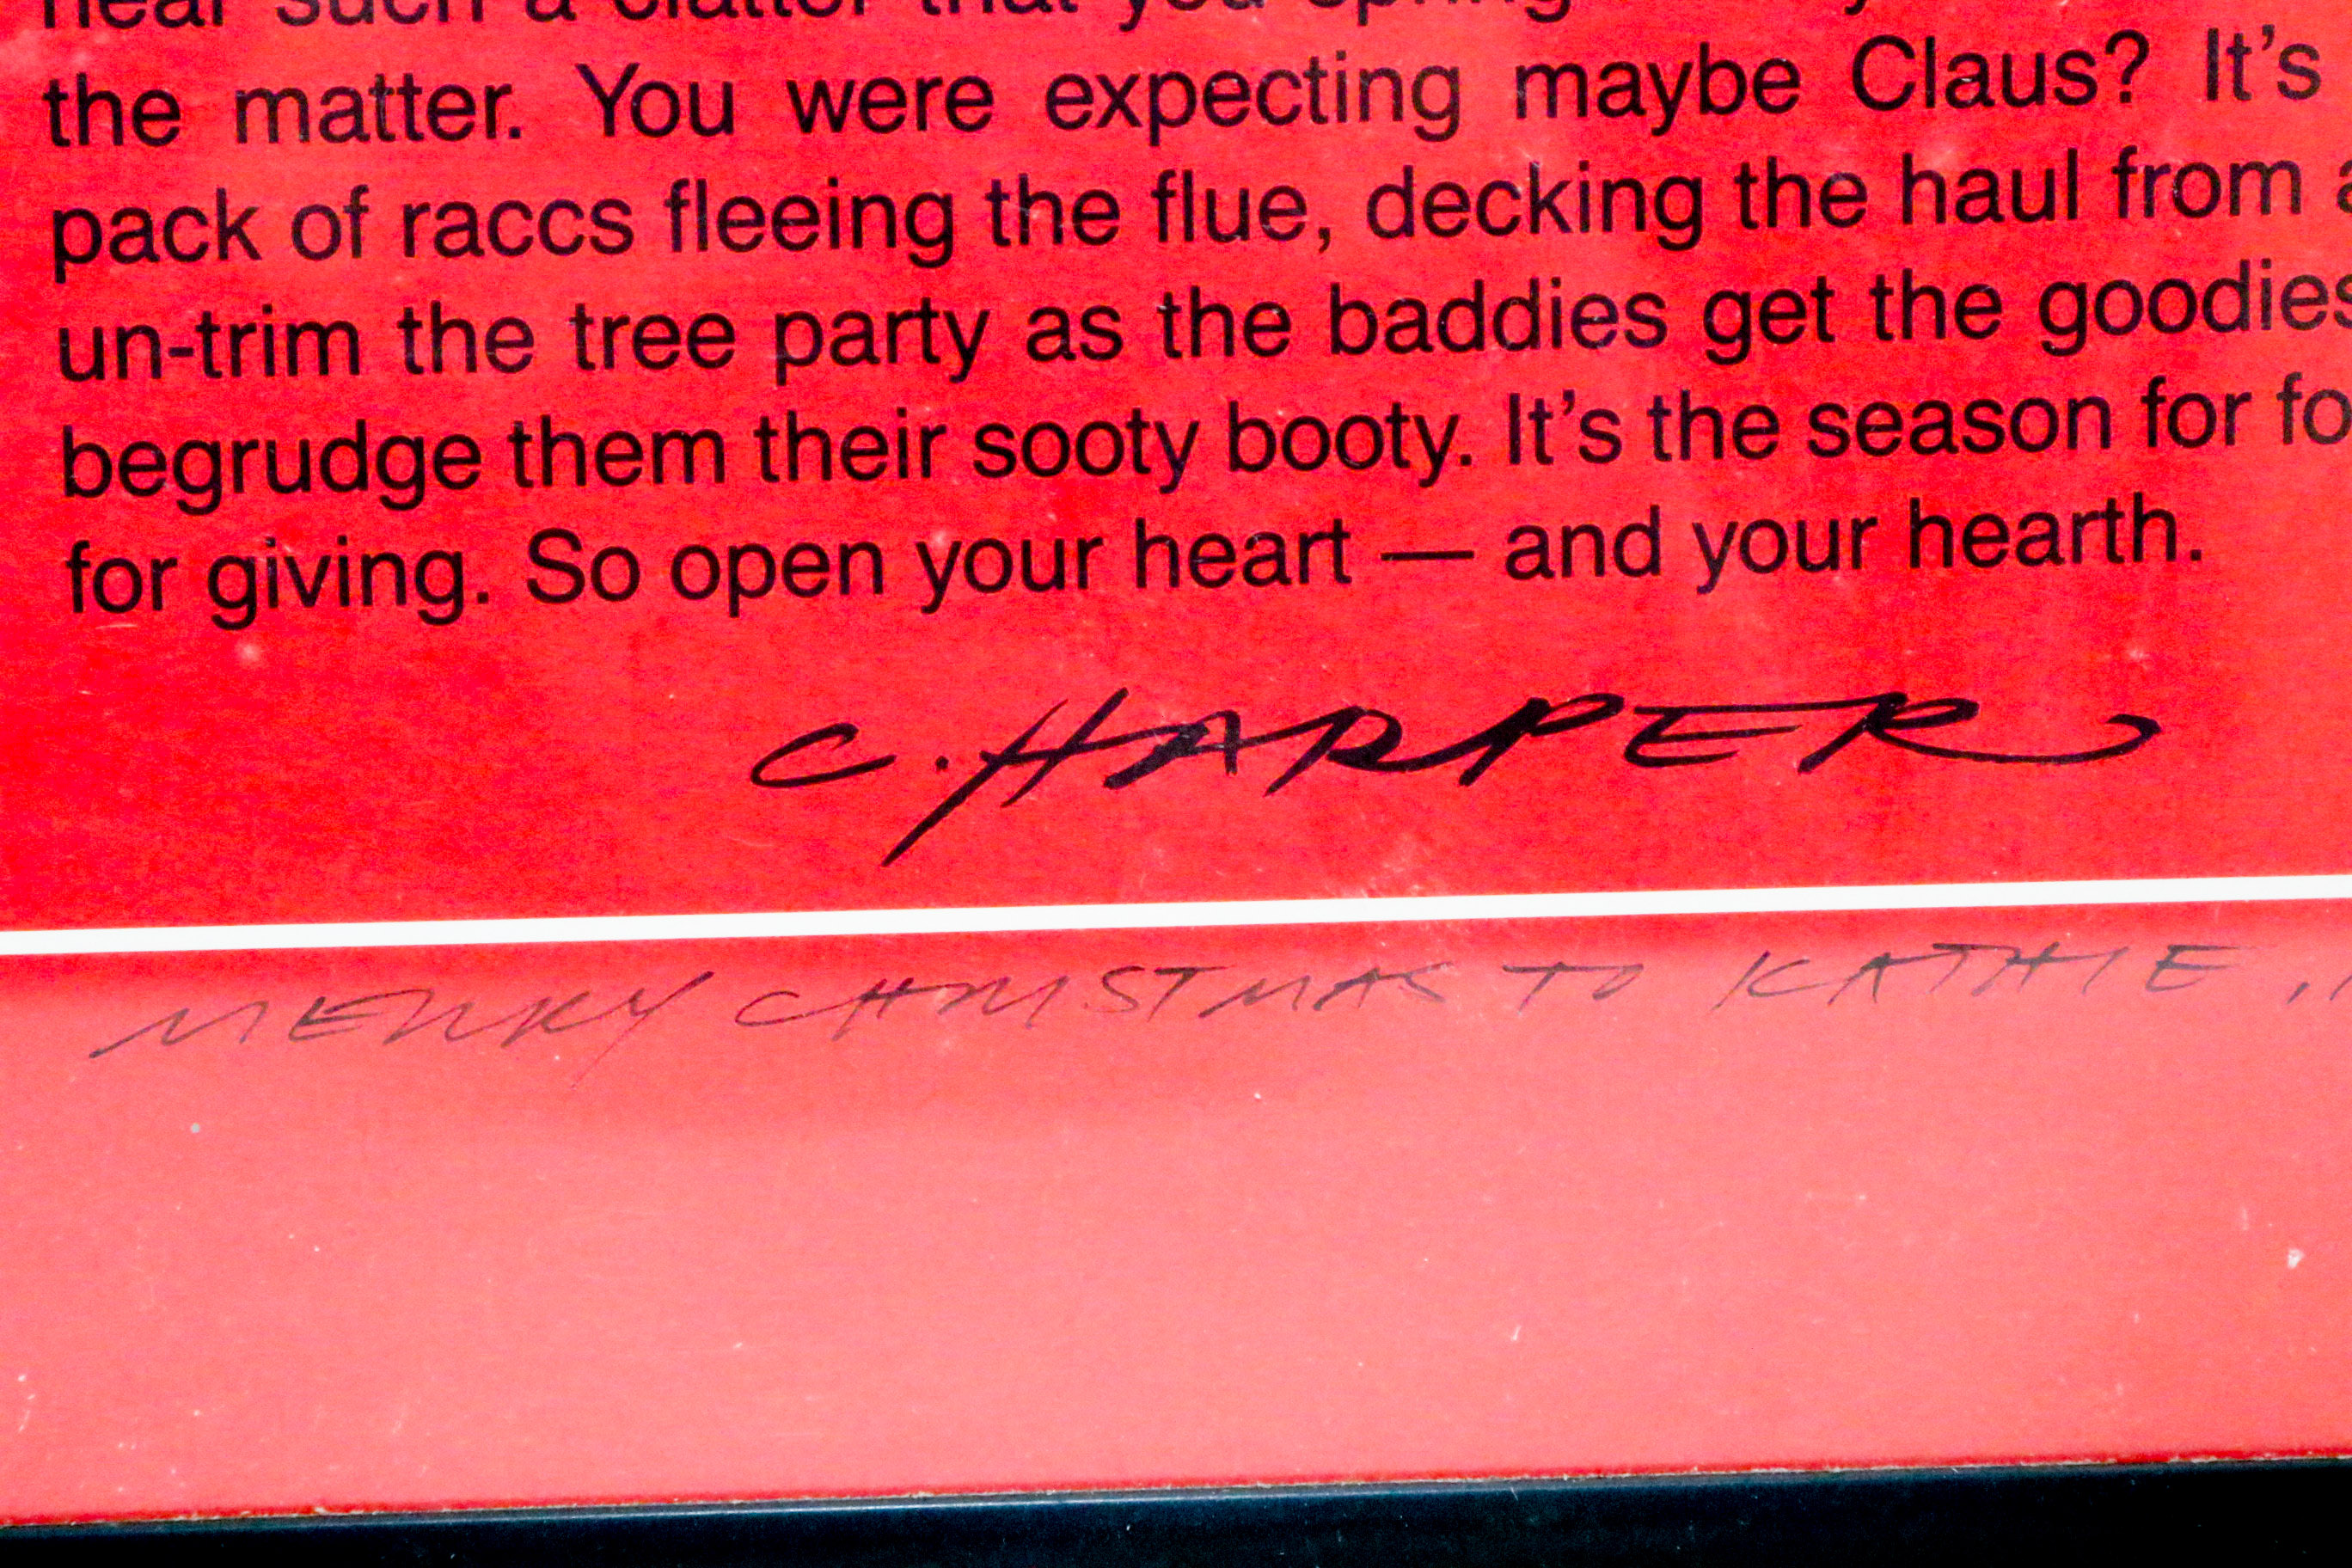 hear such a clatter that you spring
the matter. You were expecting maybe Claus? It's
pack of raccs fleeing the flue, decking the haul from a
un-trim the tree party as the baddies get the goodies
begrudge them their sooty booty. It's the season for
for giving. So open your heart — and your hearth.
C. HARPER
MERRY CHRISTMAS TO KATHIE,